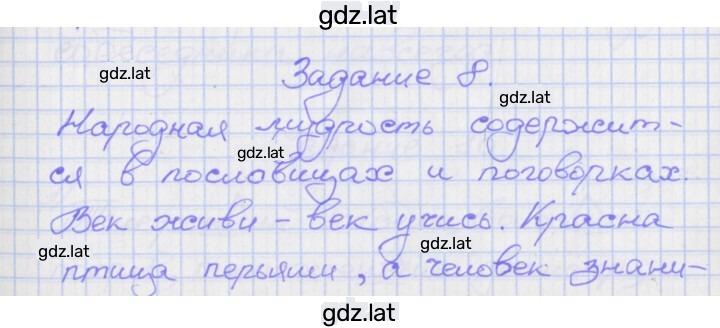 gdz.lat
gdz.lat
Задание 8.
gdz.lat
Народная мудрость содержит-
gdz.lat
ся в пословицах и поговорках.
Век живи - век учись. Красна
gdz.lat
gdz.lat
птица перьями, а человек знани-
gdz.lat